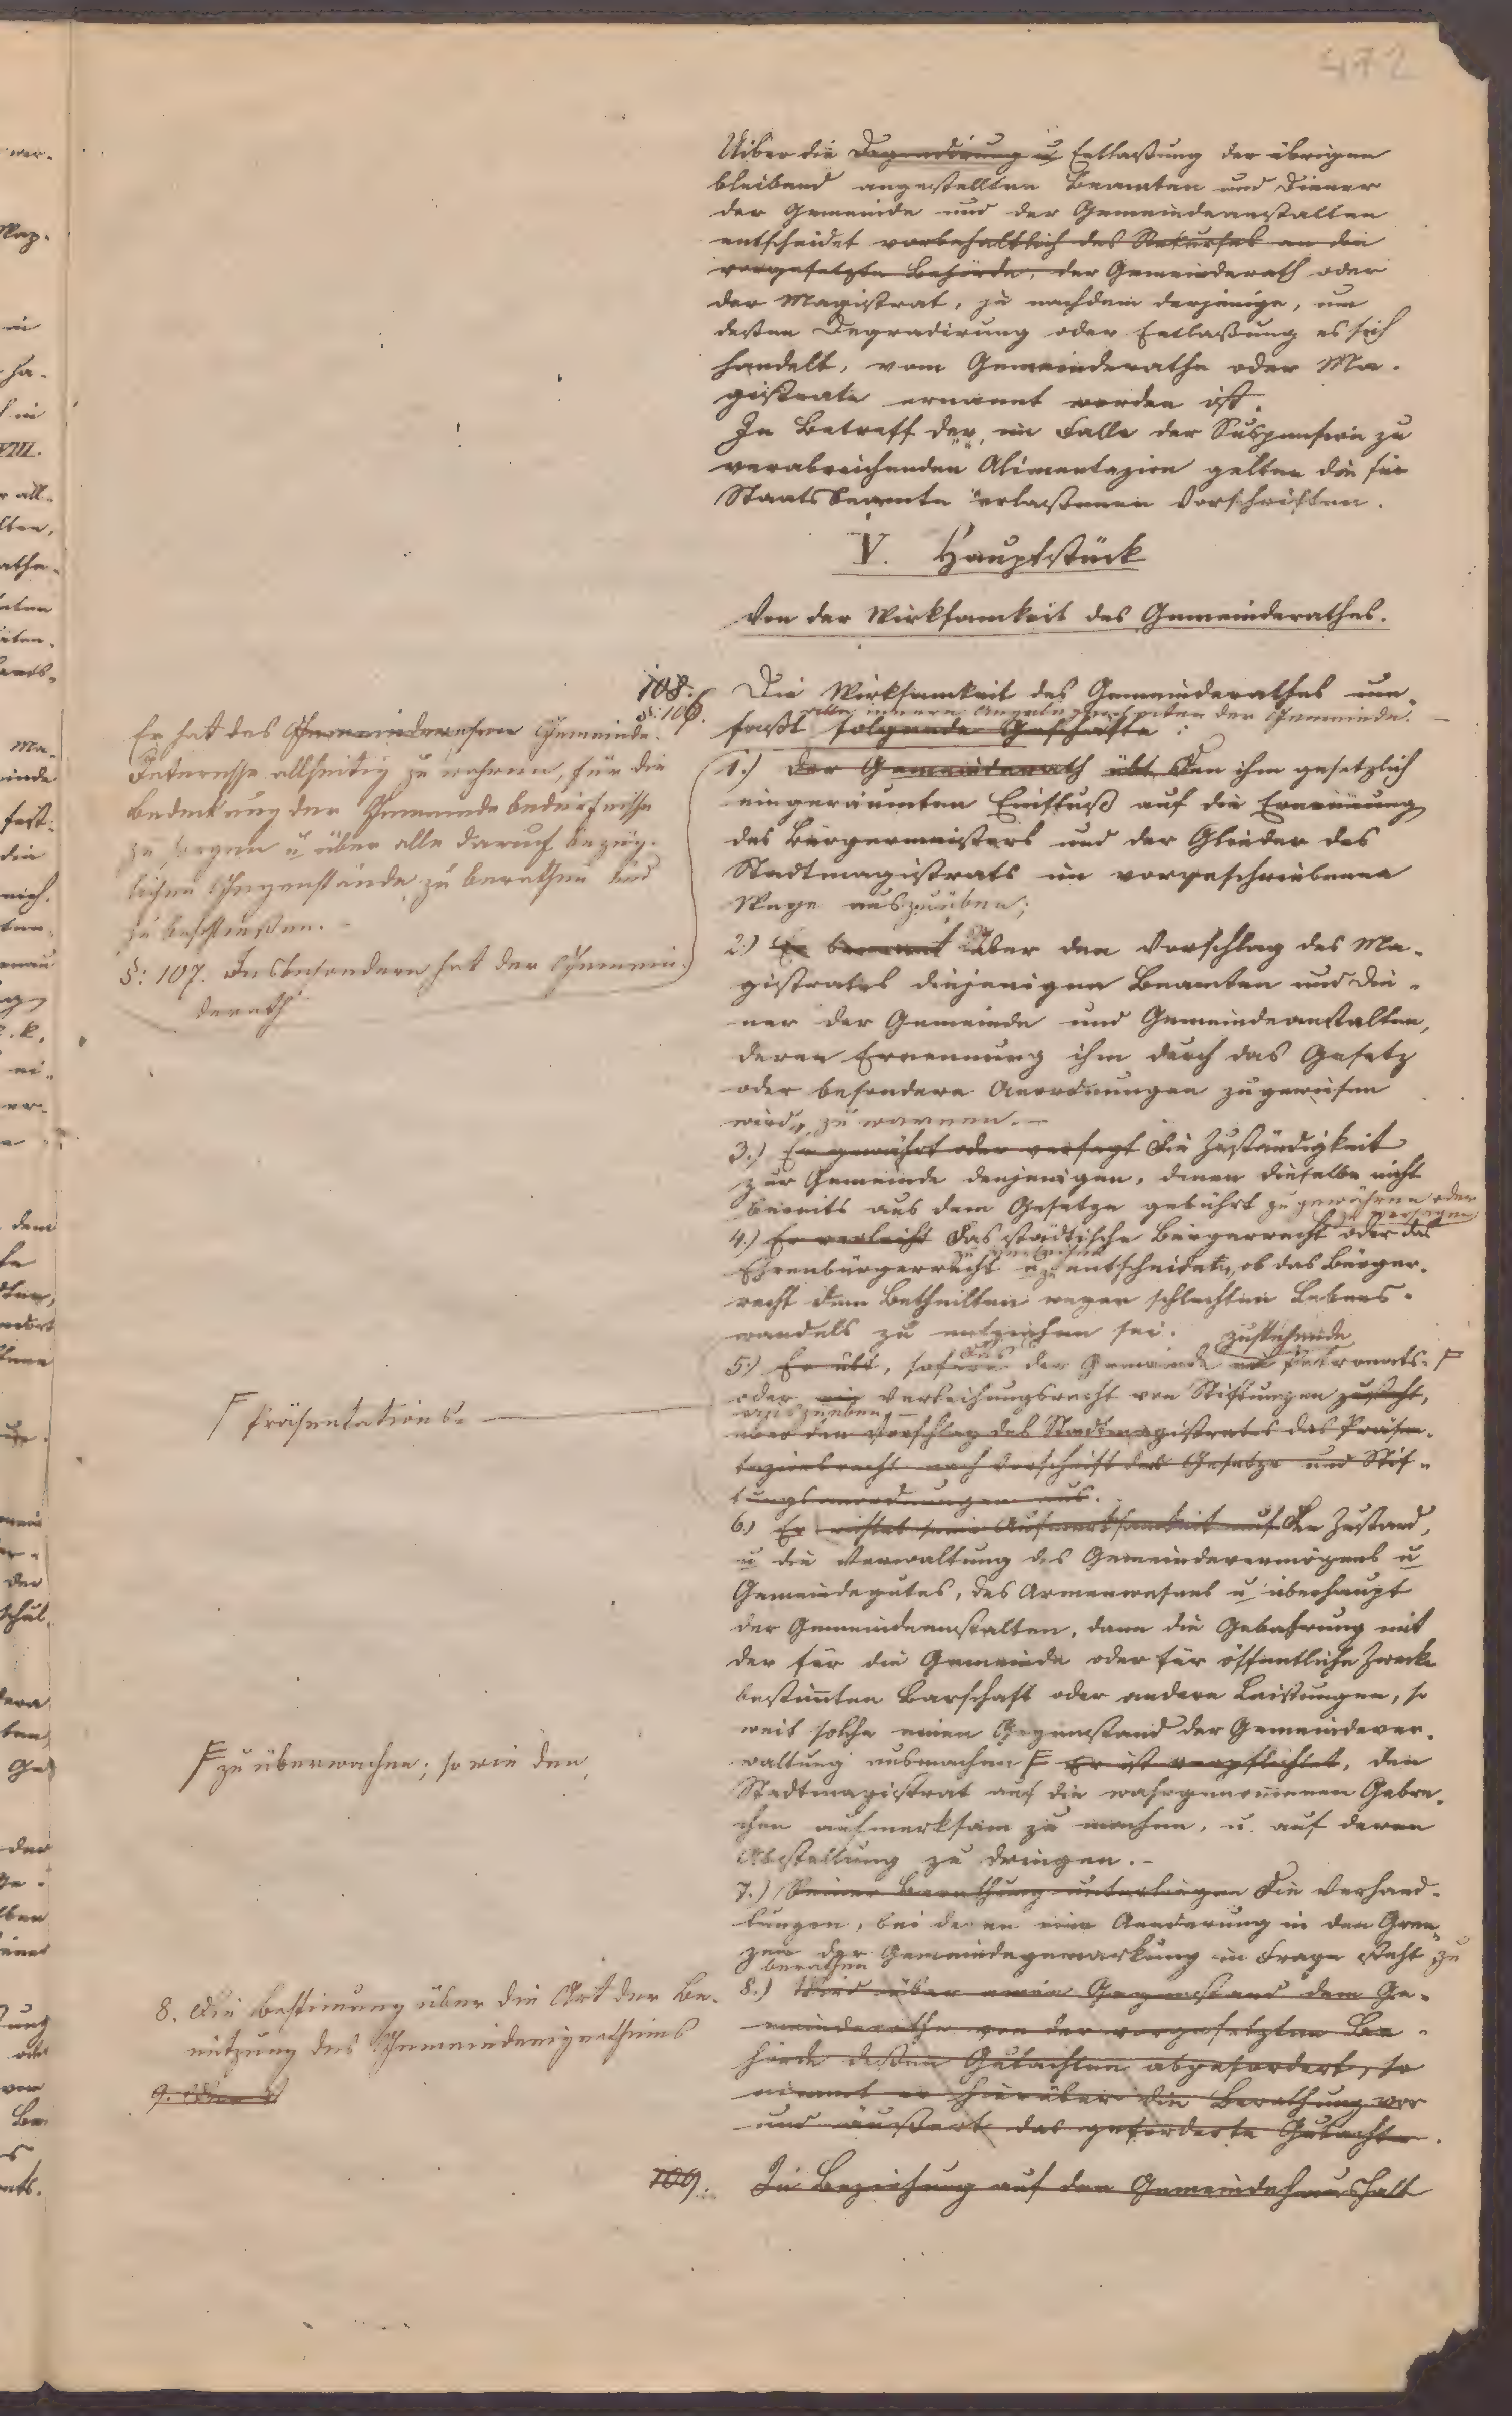 472
Uiber die Degradirung u Entlaßung der übrigen
bleibend angestellten Beamten und Diener
der Gemeinde und der Gemeindeanstalten
entscheidet vorbehaltlich des Rekurses an die
vorgesetzte Behörde, der Gemeinderath oder
der Magistrat, je nachdem derjenige, um
deßen Degradirung oder Entlaßung es sich
handelt, vom Gemeinderathe oder Ma-
gistrate ernannt worden ist.
In Betreff der, im Falle der Suspension zu
verabreichenden Alimentazion gelten die für
Staatsbeamte erlaßenen Vorschriften.
V. Hauptstück
Von der Wirksamkeit des Gemeinderathes.
108.
§: 106.
Die Wirksamkeit des Gemeinderathes um-
alle innern Angelegenheiten der Gemeinde.
faßt folgende Geschäfte:
Er hat das Gemeindewesen Gemeinde-
Interesse allseitig zu wahren, für die
Bedeckung der Gemeindebedürfnisse
zu sorgen u über alle darauf bezüg-
lichen Gegenstände zu berathen und
zu beschließen.
§: 107. Insbesondere hat der Gemein-
derath
1.) Der Gemeinderath übt Den ihm gesetzlich
eingeräumten Einfluß auf die Ernennung
des Bürgermeisters und der Glieder des
Stadtmagistrats im vorgeschriebenen
Wege auszuüben;
2.) Er benennt Über den Vorschlag des Ma-
gistrates diejenigen Beamten und Die-
ner der Gemeinde und Gemeindeanstalten,
deren Ernennung ihm durch das Gesetz
oder besondere Anordnungen zugewiesen
wird, zu ernennen.
3.) Er gewährt oder versagt Die Zuständigkeit
zur Gemeinde denjenigen, denen dieselbe nicht
bereits aus dem Gesetze gebührt zu gewähren oder
zu versagen
4.) Er verleiht Das städtische Bürgerrecht oder das
zu verleihen
Ehrenbürgerrecht u zu entscheiden, ob das Bürger-
recht dem Betheilten wegen schlechten Lebens-
wandels zu entziehen sei.
zustehende
5.) Er übt, sofern das der Gemeinde ein Patronats-
F Präsentations-
oder ein Verleihungsrecht von Stiftungen zusteht,
auszuüben,
über den Vorschlag des Stadtmagistrates das Präsen-
tazionsrecht nach Vorschrift der Gesetze und Stif-
tungsanordnungen aus.
6.) Er richtet seine Aufmerksamkeit auf Den Zustand,
u die Verwaltung des Gemeindevermögens u
Gemeindegutes, des Armenwesens u überhaupt
der Gemeindeanstalten, dann die Gebahrung mit
der für die Gemeinde oder für öffentliche Zwecke
bestimten Barschaft oder andern Leistungen, so
weit solche einen Gegenstand der Gemeindever-
waltung ausmachen F Er ist verpflichtet, den
F zu überwachen; so wie den
Stadtmagistrat auf die wahrgenommenen Gebre-
chen aufmerksam zu machen, u. auf deren
Abstellung zu dringen.
7.) Seiner Berathung unterliegen Die Verhand-
lungen, bei denen eine Aenderung in den Gren-
zen der Gemeindegemarkung in Frage steht zu
berathen
8. Die Bestimung über die Art der Be-
nützung des Gemeindeeigenthums
9. Die
8.) Wird über einen Gegenstand dem Ge-
meinderathe von der vorgesetzten Be-
hörde deßen Gutachten abgefordert, so
nimmt er hierüber die Berathung vor
und äußert das geforderte Gutachten.
109. In Beziehung auf den Gemeindehaushalt